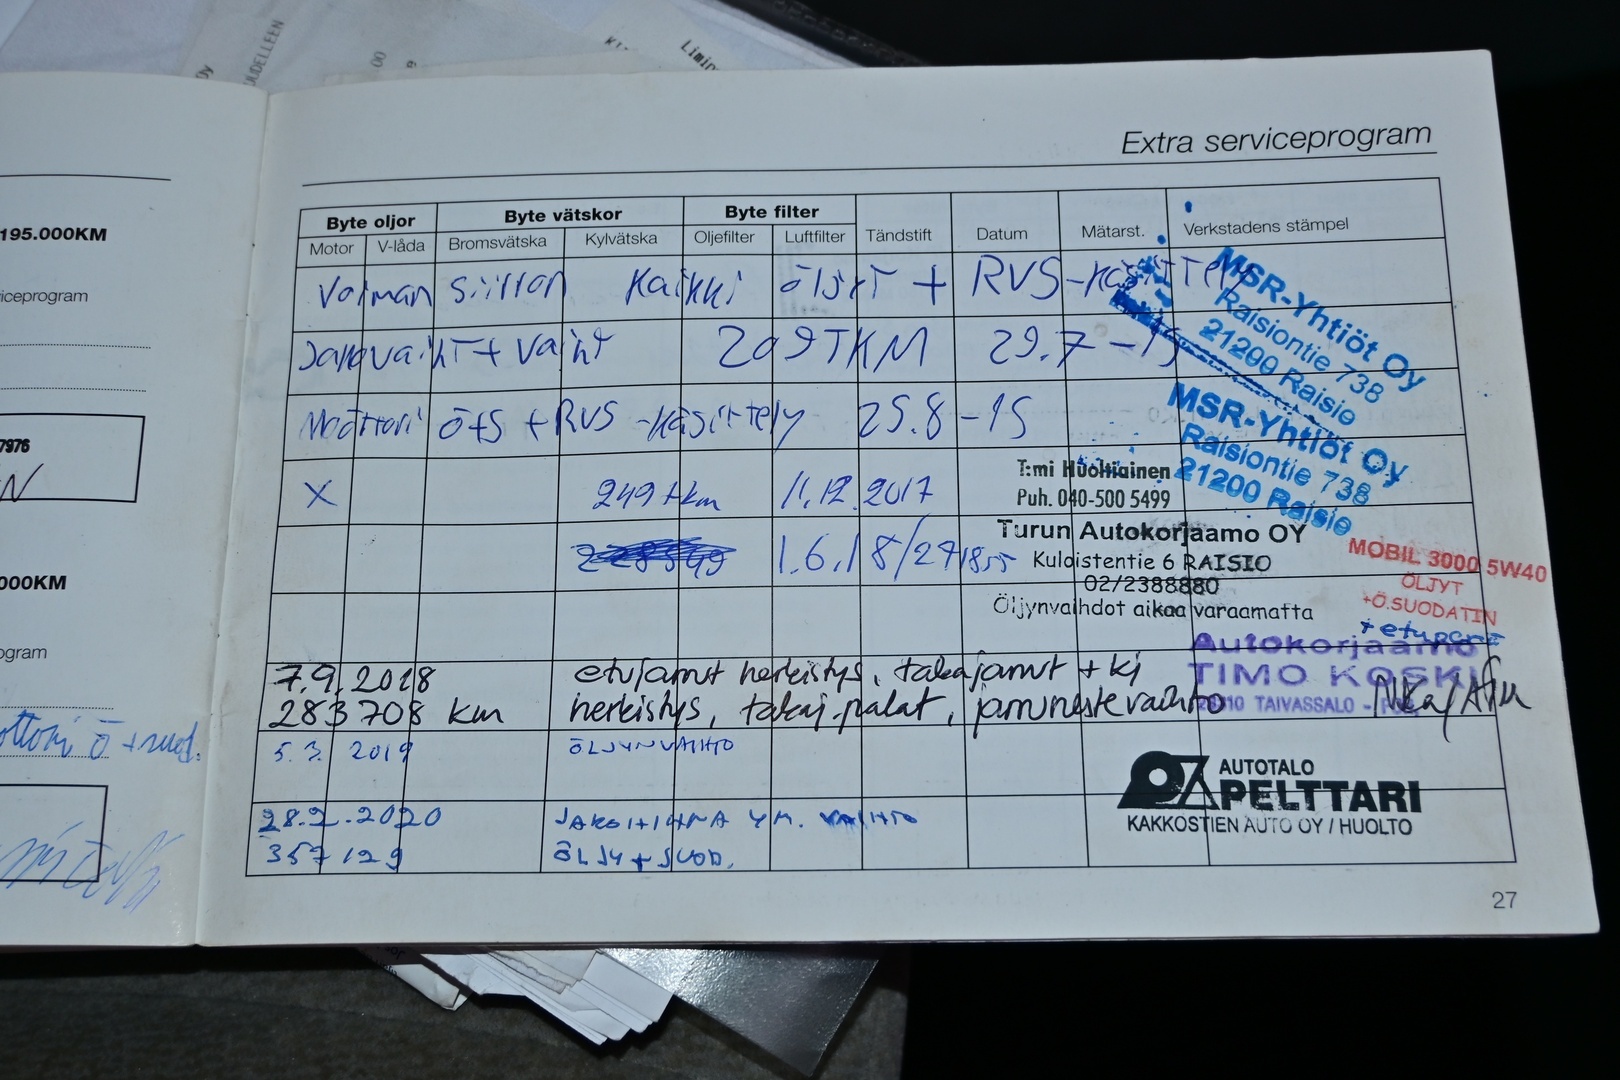 UDELLEEN
Oy
00
Limin
195.000KM
iceprogram
7976
000KM
ogram
ottori ö + suod.
Extra serviceprogram
Byte oljor Byte vätskor Byte filter
Motor V-låda Bromsvätska Kylvätska Oljefilter Luftfilter Tändstift Datum Mätarst. Verkstadens stämpel
Voiman siirron kaikki öljyt + RVS-käsittely
vaiht + vaiht 209TKM 29.7-15
Moottori ö+S + RVS-käsittely 25.8-15
MSR-Yhtiöt Oy
Raisiontie 738
21200 Raisio
MSR-Yhtiöt Oy
Raisiontie 738
21200 Raisio
X 249 tkm 11.12.2017
T:mi Huoltiainen
Puh. 040-500 5499
1.6.18/271855
Turun Autokorjaamo OY
Kuloistentie 6 RAISIO
02/2388880
Öljynvaihdot aikaa varaamatta
MOBIL 3000 5W40
ÖLJYT
+Ö.SUODATIN
7.9.2018 etujarrut herkistys, takajarrut + kj
283708 km herkistys, takaj.palat, jarruneste vaihto
Autokorjaamo
TIMO KOSKI
TAIVASSALO
5.3.2019 ÖLJYNVAIHTO
28.2.2020 JAKOHIHNA YM. VAIHTO
357129 ÖLJY + SUOD.
AUTOTALO
PELTTARI
KAKKOSTIEN AUTO OY / HUOLTO
27